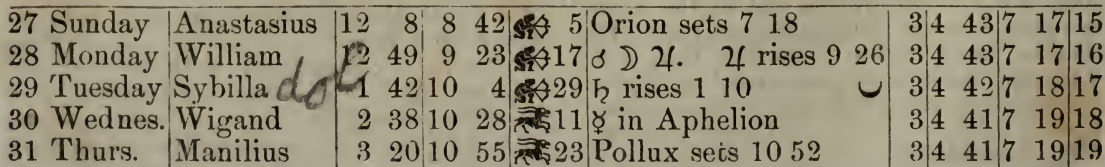 27 Sunday Anastasius 12 8 8 42 ♐ 5 Orion sets 7 18 3 4 43 7 17 15
28 Monday William 12 49 9 23 ♐ 17 ☌ ☽ ♃. ♃ rises 9 26 3 4 43 7 17 16
29 Tuesday Sybilla 1 42 10 4 ♐ 29 ♄ rises 1 10 3 4 42 7 18 17
30 Wednes. Wigand 2 38 10 28 ♑ 11 ☿ in Aphelion 3 4 41 7 19 18
31 Thurs. Manilius 3 20 10 55 ♑ 23 Pollux sets 10 52 3 4 41 7 19 19